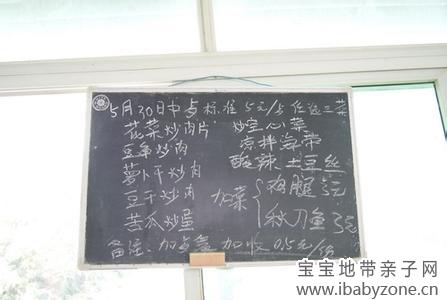 5月30日中占标准5元/5任选三菜
花菜炒肉片 炒空心菜
豆角炒肉 凉拌海带
萝卜干炒肉 酸辣土豆丝
豆干炒肉 加菜 鸡腿3元
苦瓜炒蛋 秋刀鱼3元
备注: 加占盒 加收0.5元/
宝宝地带亲子网
www.ibabyzone.cn